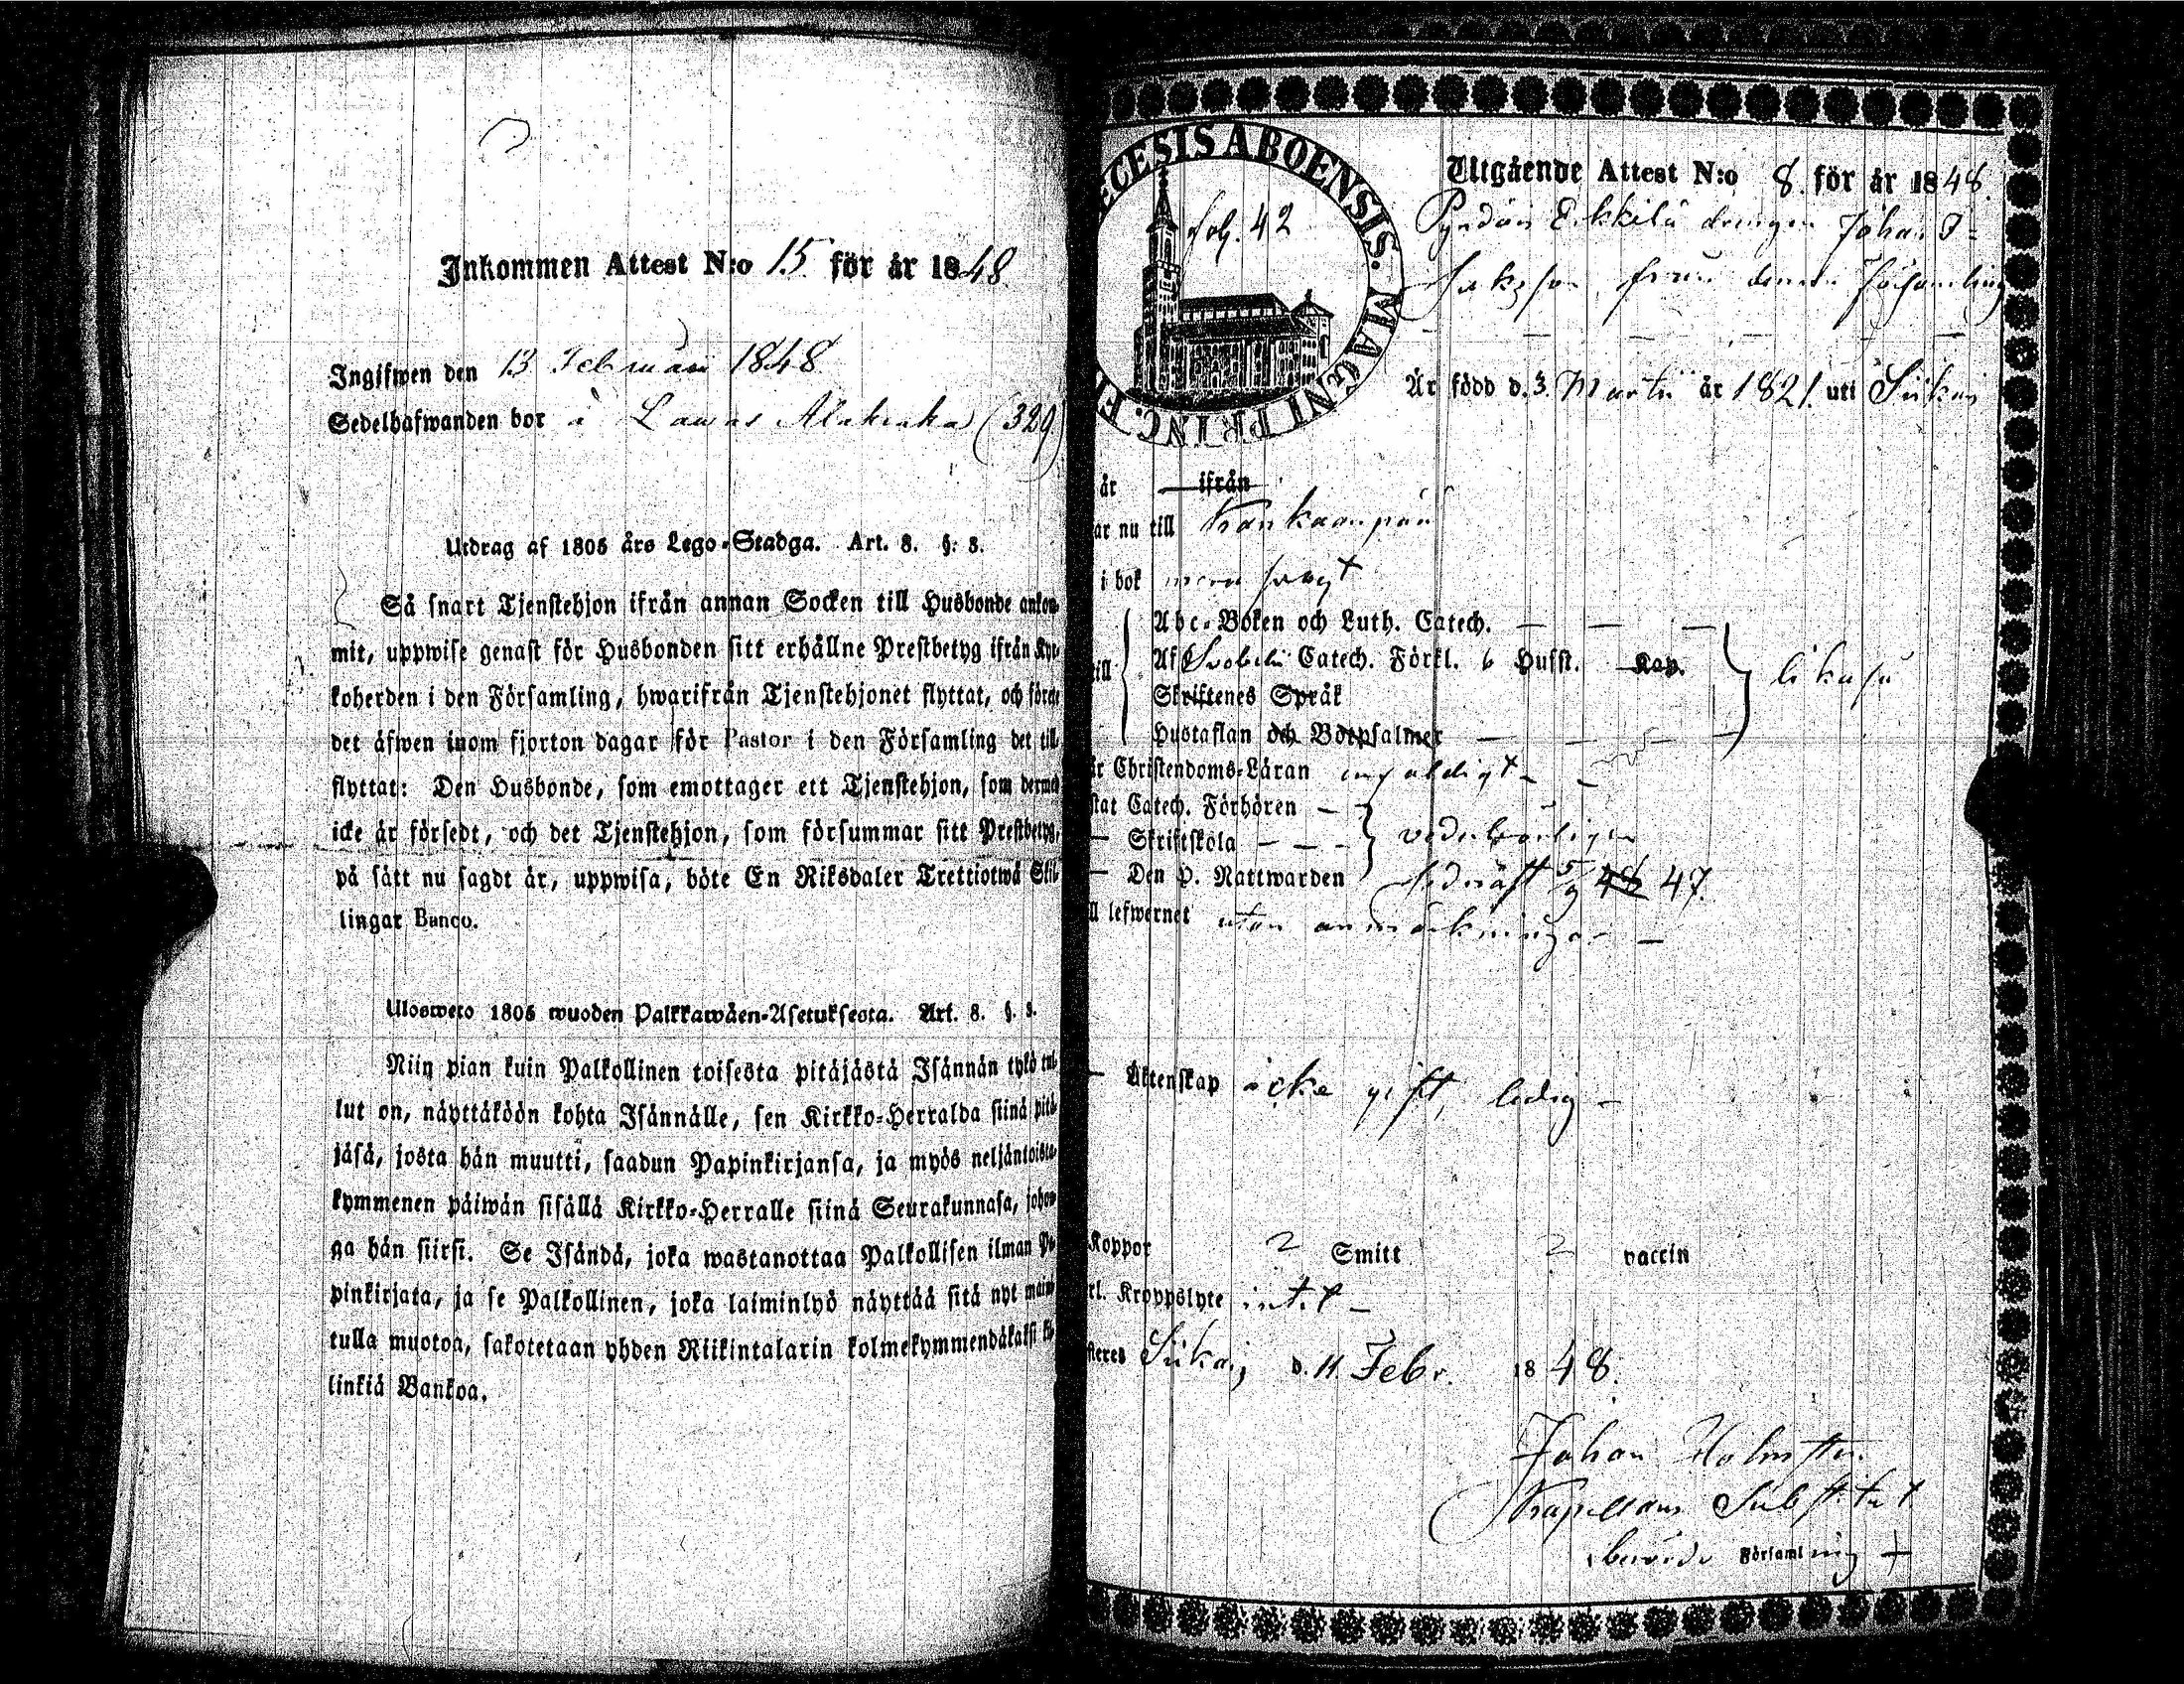 Inkommen Attest N:o 15 för år 1848.
Ingifwen den 13 Februarii 1848
Sedelhafwanden bor å Lauvas Alakoka (329)
Utdrag af 1805 års Lego-Stadga. Art. 8. §: 3.
Så snart Tjenstehjon ifrån annan Socken till Husbonde ankom-
mit, uppwise genast för Husbonden sitt erhållne Prestbetyg ifrån Kyr-
koherden i den Församling, hwarifrån Tjenstehjonet flyttat, och förete
det äfwen inom fjorton dagar för Pastor i den Församling det till-
flyttat: Den Husbonde, som emottager ett Tjenstehjon, som dermed
icke är försedt, och det Tjenstehjon, som försummar sitt Prestbetyg,
på sätt nu sagdt är, uppwisa, böte En Riksdaler Trettiotwå Skil-
lingar Banco.
Ulosweto 1805 wuoden Palkkawäen-Asetuksesta. Art. 8. §. 3.
Niin pian kuin Palkollinen toisesta pitäjästä Isännän tykö tul-
lut on, näyttäköön kohta Isännälle, sen Kirkko-Herralda siinä pitä-
jäsä, josta hän muutti, saadun Papinkirjansa, ja myös neljäntoista-
kymmenen päiwän sisällä Kirkko-Herralle siinä Seurakunnasa, johon-
ga hän siirsi. Se Isändä, joka wastanottaa Palkollisen ilman Pa-
pinkirjata, ja se Palkollinen, joka laiminlyö näyttää sitä nyt maini-
tulla muotoa, sakotetaan yhden Riikintalarin kolmekymmendäkaksi kil-
linkiä Bankoa.
ECESIS ABOENSIS. MAGNI PRINC. F
fol. 42
Utgående Attest N:o 8. för år 1848
Erkkilä drengen Johan I=
saksson från denna församling
Är född d. 3 Martii år 1821. uti Siikais
år ifrån
ar nu till Kankaanpää
i bok swagt
till
Abc-Boken och Luth. Catech.
Af Svebelii Catech. Förkl. 6 Hufst. Kap.
Skriftenes Språk
Hustaflan och Botpsalmer
likaså
r Christendoms-Läran enfaldigt
stat Catech. Förhören
Skriftskola
Den H. Nattwarden
vederbörligen
sednast 5/9 48 47.
ll lefwernet utan anmärkningar
Äktenskap icke gift, ledig
Koppor ? Smitt ? vaccin
rl. Kroppslyte intet
steres Siikais d. 11 Febr. 1848.
Johan Holmsten
Kapellans Substitut
berörde Församling